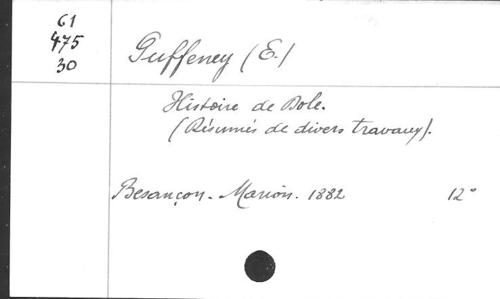 61
475
30
Guffeney (E.)
Histoire de Dole.
(Résumés de divers travaux).
Besançon. Marion. 1882 12°